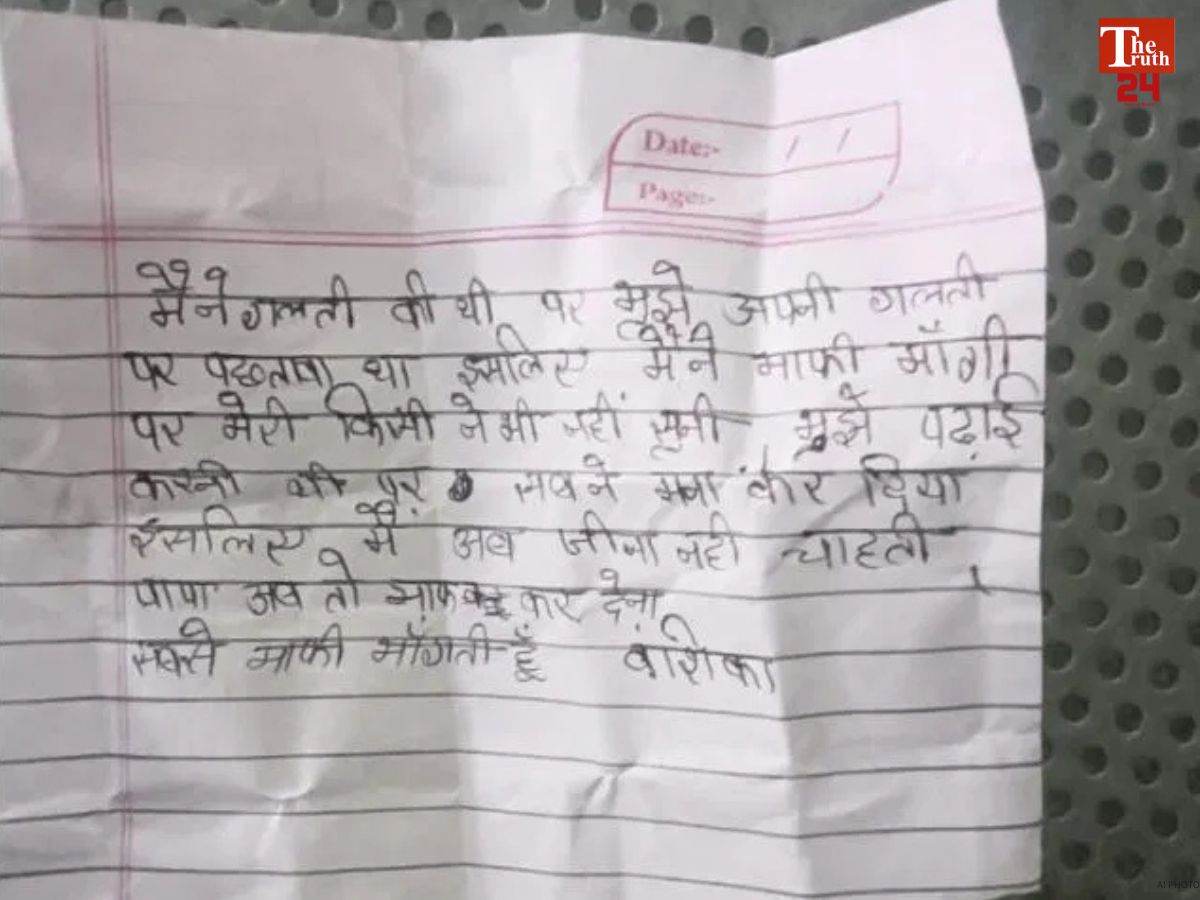 The Truth
24
Date:- / /
Page:-
मैंने गलती की थी पर मुझे अपनी गलती
पर पछतावा था इसलिए मैंने माफी माँगी
पर मेरी किसी ने भी नहीं सुनी मुझे पढ़ाई
करनी थी पर सबने मना कर दिया
इसलिए मैं अब जीना नही चाहती
पापा अब तो माफ कर देना
सबसे माफी माँगती हूँ वंशिका
AI PHOTO